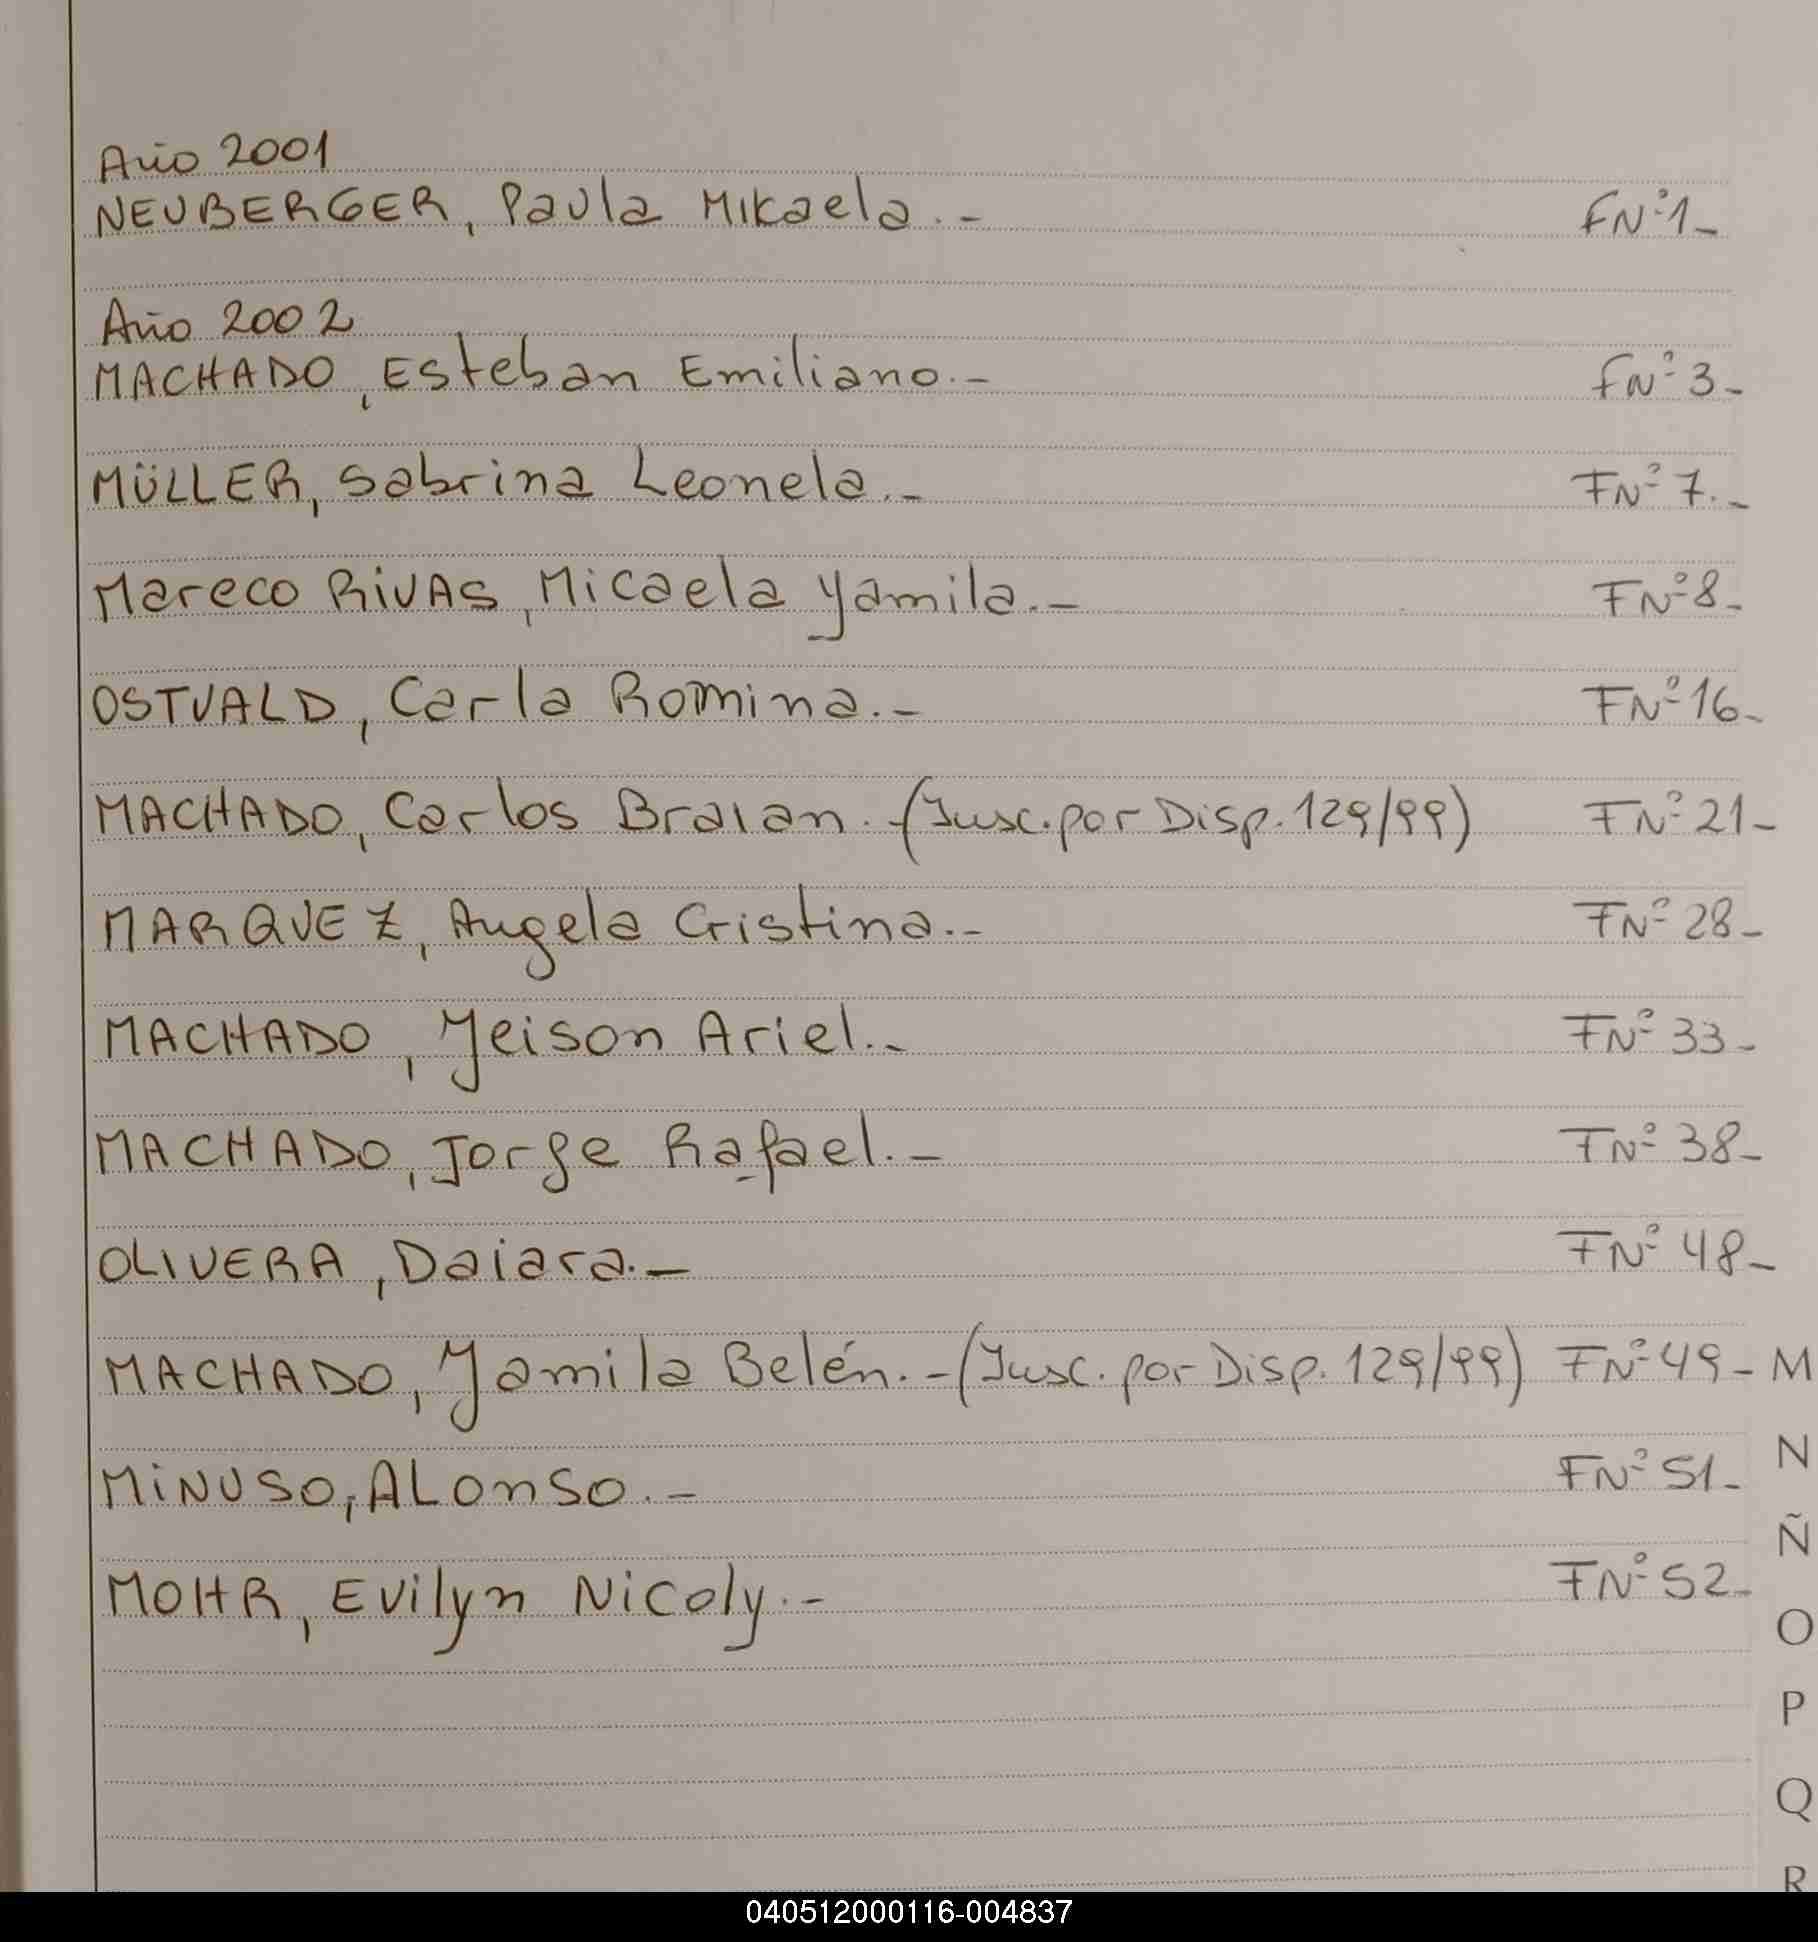 Año 2001
NEUBERGER, Paula Mikaela.- FNº1-
Año 2002
MACHADO, Esteban Emiliano.- FNº 3-
MÜLLER, Sabrina Leonela.- FNº 7.-
Mareco RiVAS, Micaela Yamila.- FNº8-
OSTVALD, Carla Romina.- FNº16-
MACHADO, Carlos Braian.-(Insc.por Disp.129/99) FNº21-
MARQUEZ, Angela Cristina.- FNº 28-
MACHADO, Yeison Ariel.- FNº 33-
MACHADO, Jorge Rafael.- FNº 38-
OLIVERA, Daiara.- FNº 48-
MACHADO, Yamila Belén.-(Insc.por Disp.129/99) FNº49- M
N
MiNUSO, ALonso.- FNº 51-
Ñ
MOHR, Evilyn Nicoly.- FNº52-
O
P
Q
R
040512000116-004837